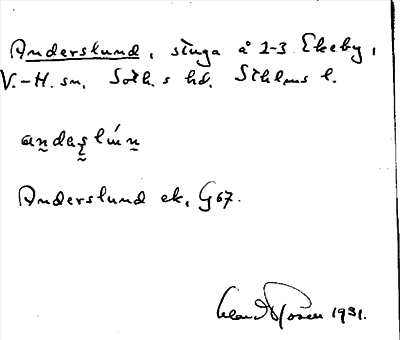 Anderslund, stuga å 2-3 Ekeby,
V.-H. sn. Soth.s hd. Sthlms l.
andaʂlún
Anderslund ek. G67.
1931.